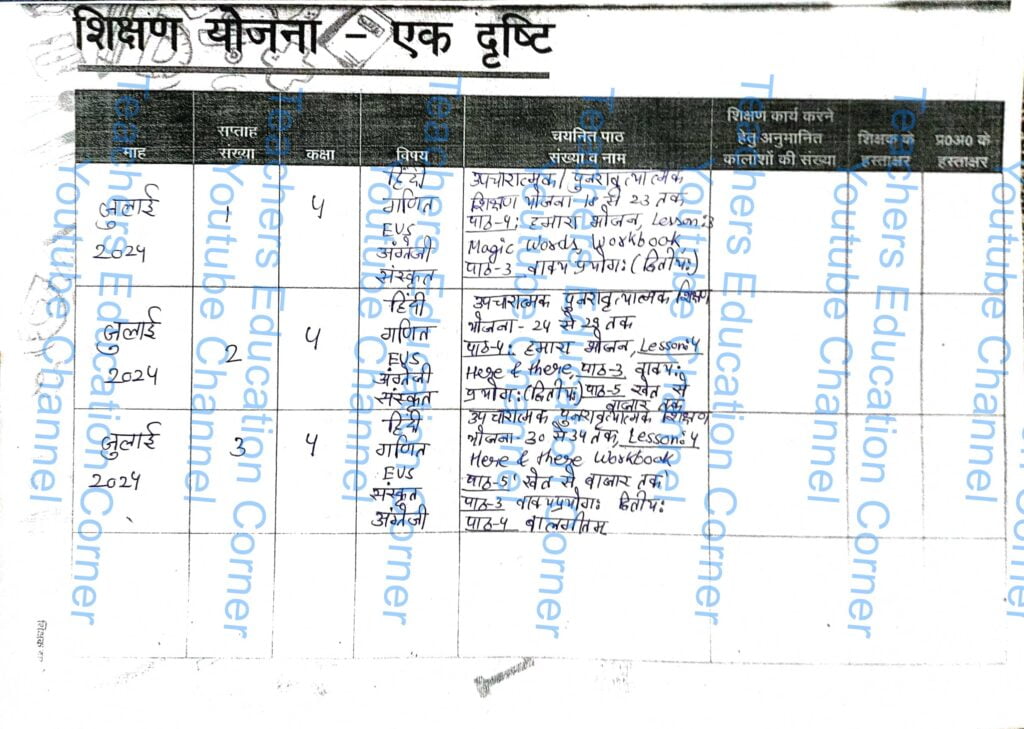 शिक्षण योजना - एक दृष्टि
माह
सप्ताह
संख्या
कक्षा
विषय
चयनित पाठ
संख्या व नाम
शिक्षण कार्य करने
हेतु अनुमानित
कालांशों की संख्या
शिक्षक के
हस्ताक्षर
प्र०अ० के
हस्ताक्षर
जुलाई
2024
1
4
हिंदी
गणित
EVS
अंग्रेजी
संस्कृत
उपचारात्मक/ पुनरावृत्यात्मक
शिक्षण योजना 18 से 23 तक
पाठ-4: हमारा भोजन, Lesson:3
Magic Words, Workbook,
पाठ-3 वाक्य प्रयोग: (द्वितीय:)
जुलाई
2024
2
4
हिंदी
गणित
EVS
अंग्रेजी
संस्कृत
उपचारात्मक पुनरावृत्यात्मक शिक्षण
योजना - 24 से 29 तक
पाठ-4: हमारा भोजन, Lesson:4
Here & there, पाठ-3 वाक्य:
प्रयोग: (द्वितीय:) पाठ-5 खेत से
बाजार तक
जुलाई
2024
3
4
हिंदी
गणित
EVS
संस्कृत
अंग्रेजी
उपचारात्मक पुनरावृत्यात्मक शिक्षण
योजना- 30 से 34 तक, Lesson:4
Here & there Workbook
पाठ-5: खेत से बाजार तक
पाठ-3 वाक्यप्रयोग: द्वितीय:
पाठ-4 बालगीतम्
Teachers Education Corner
Youtube Channel
Teachers Education Corner
Youtube Channel
Teachers Education Corner
Youtube Channel
Teachers Education Corner
Youtube Channel
Teachers Education Corner
Youtube Channel
Teachers Education Corner
Youtube Channel